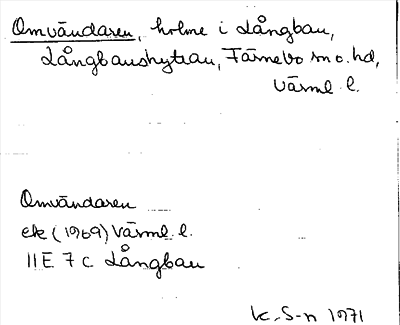 Omvändaren, holme i Långban,
Långbanshyttan, Färnebo sn o. hd,
Värml. l.
Omvändaren
ek (1969) Värml. l.
11E 7c Långban
K. S-n 1971